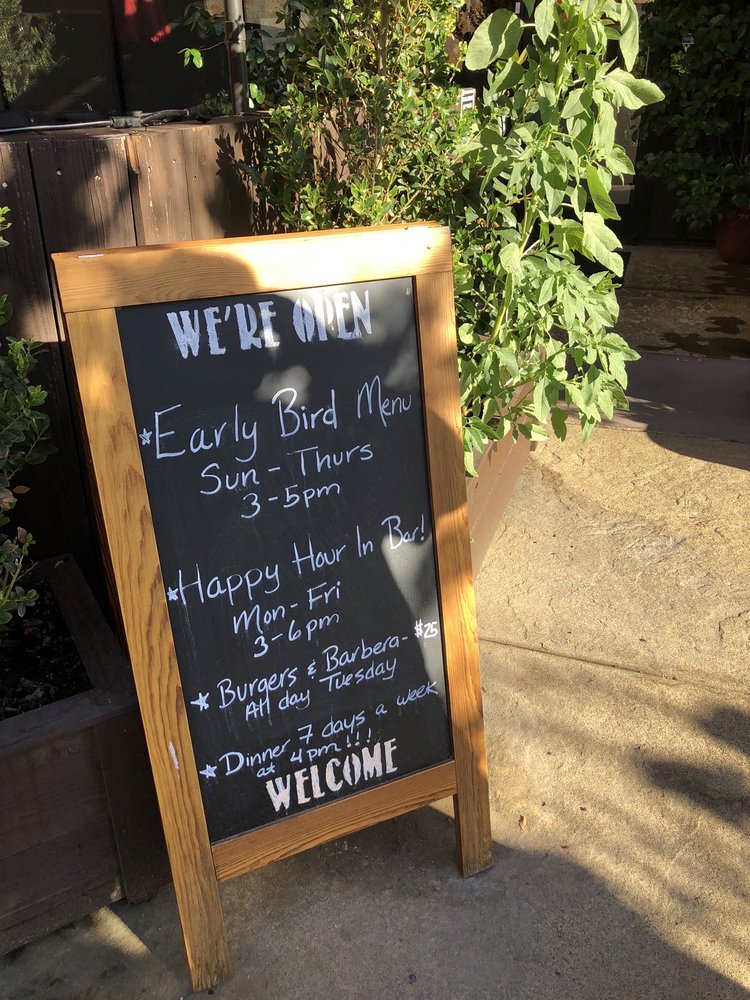 WE'RE OPEN
*Early Bird Menu
Sun - Thurs
3-5pm
*Happy Hour In Bar!
Mon - Fri
3-6pm
*Burgers & Barbera - $25
All day Tuesday
*Dinner 7 days a week
at 4pm!!!
WELCOME